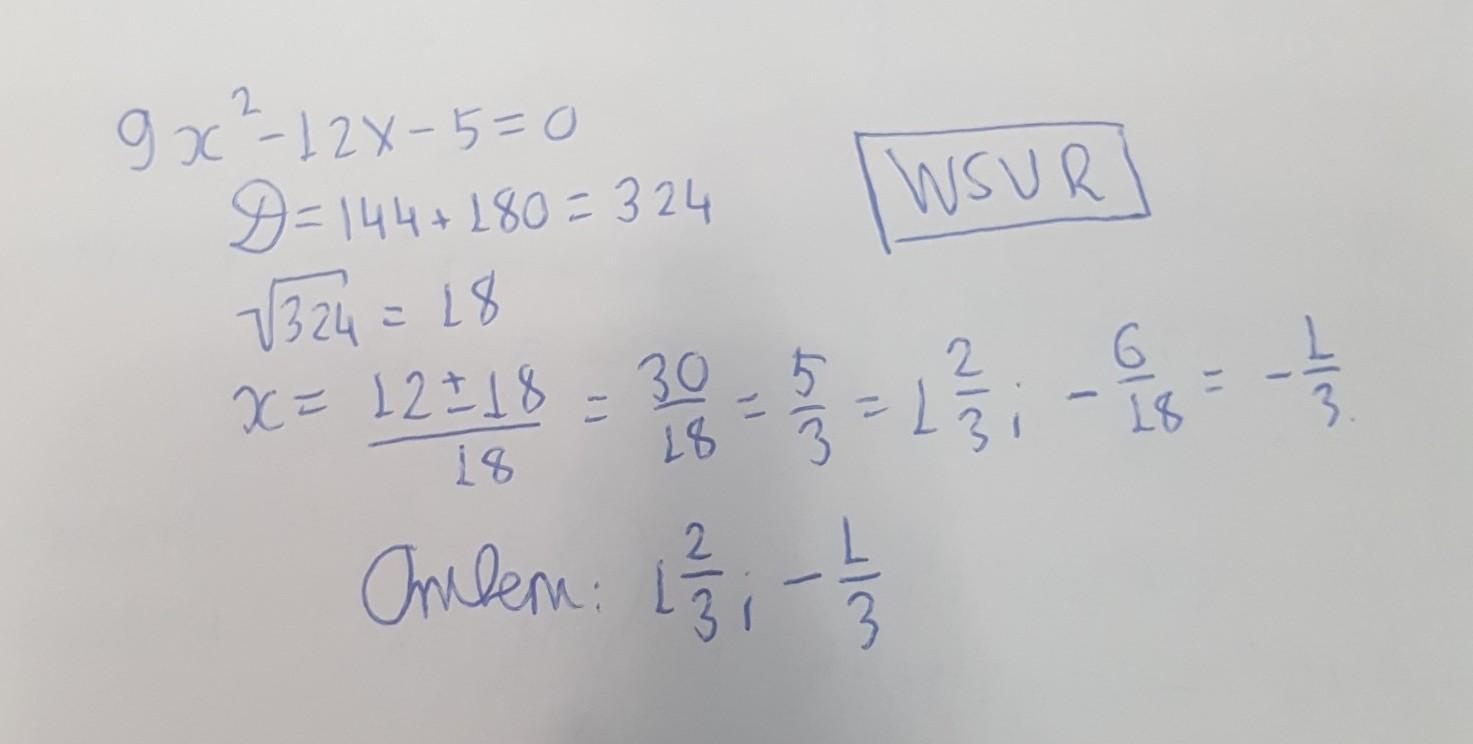 9x² - 12x - 5 = 0
D = 144 + 180 = 324
WSUR
√324 = 18
x = (12 ± 18)/18 = 30/18 = 5/3 = 1 2/3; - 6/18 = - 1/3.
Ответ: 1 2/3; - 1/3